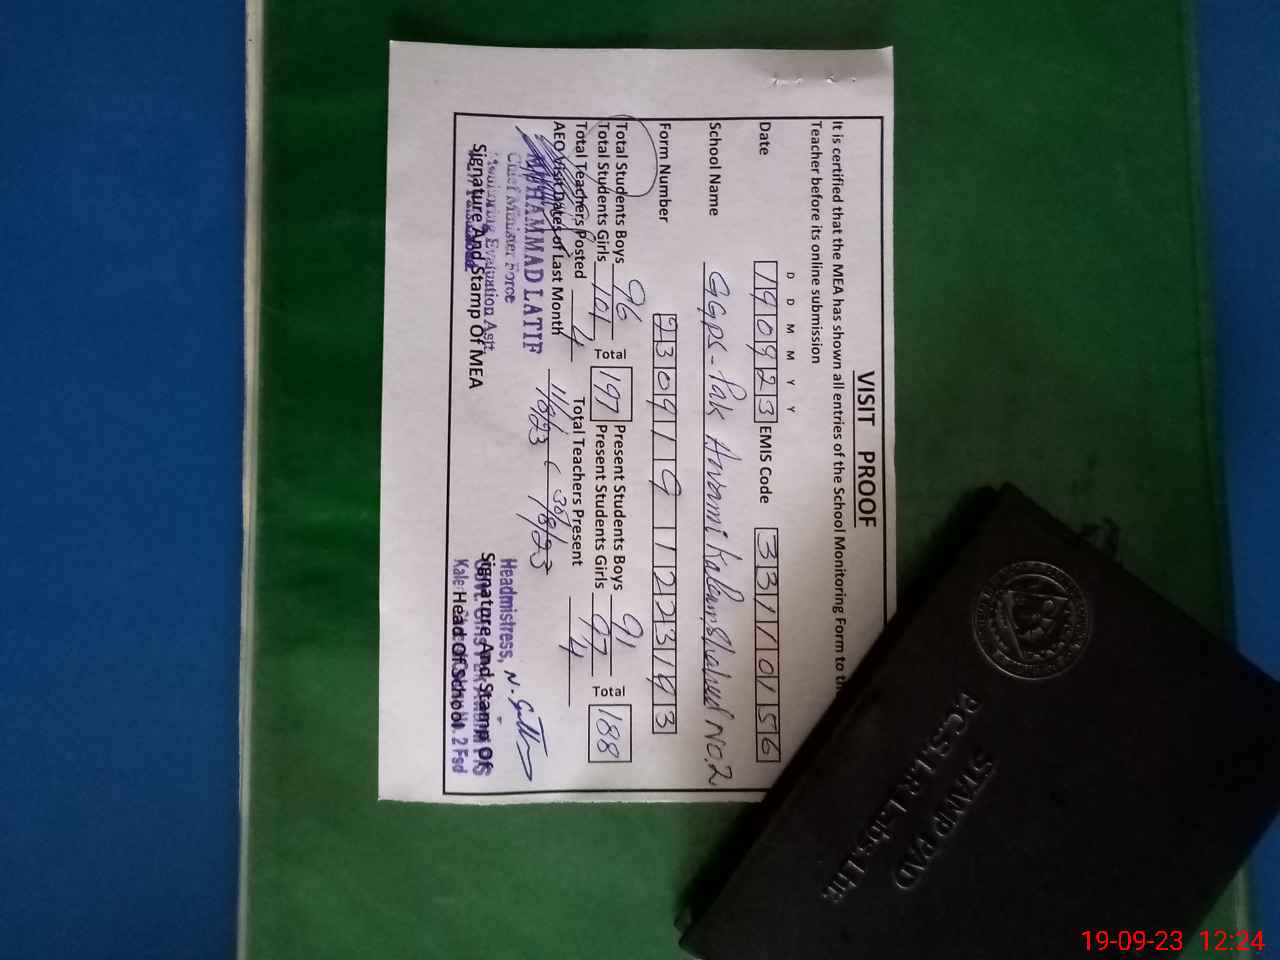 VISIT PROOF
It is certified that the MEA has shown all entries of the School Monitoring Form to
Teacher before its online submission
D D M M Y Y
Date 190923 EMIS Code 33110156
School Name GGPS - Pak Awami Kaleem Shaheed NO.2
Form Number
Total Students Boys 96 Total 197 Present Students Boys 91 Total 188
Total Students Girls 101 Present Students Girls 97
Total Teachers Posted 4 Total Teachers Present 4
AEO Visit Dates of Last Month
MUHAMMAD LATIF
Chief Minister Force
Monitoring Evaluation Astt
Signature And Stamp Of MEA
Headmistress,
Signature And Stamp Of
Head Of School
No. 2 Fsd
STAMP PAD
P.C.S.I.R. Labs. Ltr.
19-09-23 12:24